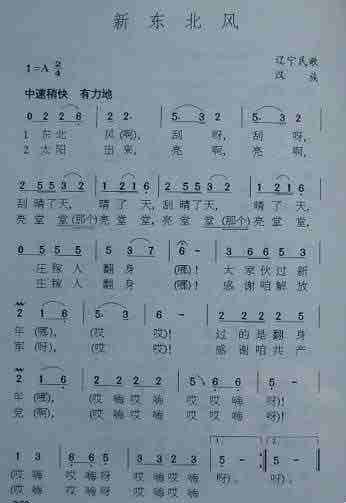 新东北风
1=A 2/4
辽宁民歌
汉族
中速稍快 有力地
0 2 2 2 6 | 2 2 | 5. 3 2 | 5. 3 2 |
1 东北 风(啊), 刮 呀, 刮 呀,
2 太阳 出来, 亮 啊, 亮 啊,
2 5 5 3 2 | 1 2 1 6 | 2 5 5 3 2 | 1 2 1 6 |
刮 晴了天, 晴了天, 刮 晴了天, 晴了天,
亮堂堂(那个)亮堂堂, 亮堂堂(那个)亮堂堂,
0 5 5 5 | 5 3 7 | 6 - | 3 6 6 5 3 |
庄稼人 翻身 (哪)! 大家伙过新
庄稼人 翻身 (哪)! 感谢咱解放
2 1 6 | 2 3 1 | 2 - | 2 2 2 2 5 |
年(哪), (哎 哎)! 过的是翻身
军(呀), (哎 哎)! 感谢咱共产
2 1 6 | 2 2 2 2 | 2 5 6 6 | 5 - |
年(哪)! (哎 嗨哎嗨 哎嗨 呀)!
党(啊)! (哎 嗨哎嗨 哎嗨 呀)!
1 1 2 | 6 6 5 | 1 2 1 6 | 5 - :‖ 5 - ‖
(哎 嗨 哎嗨呀 哎嗨哎嗨 呀). 呀)!
(哎 嗨 哎嗨呀 哎嗨哎嗨